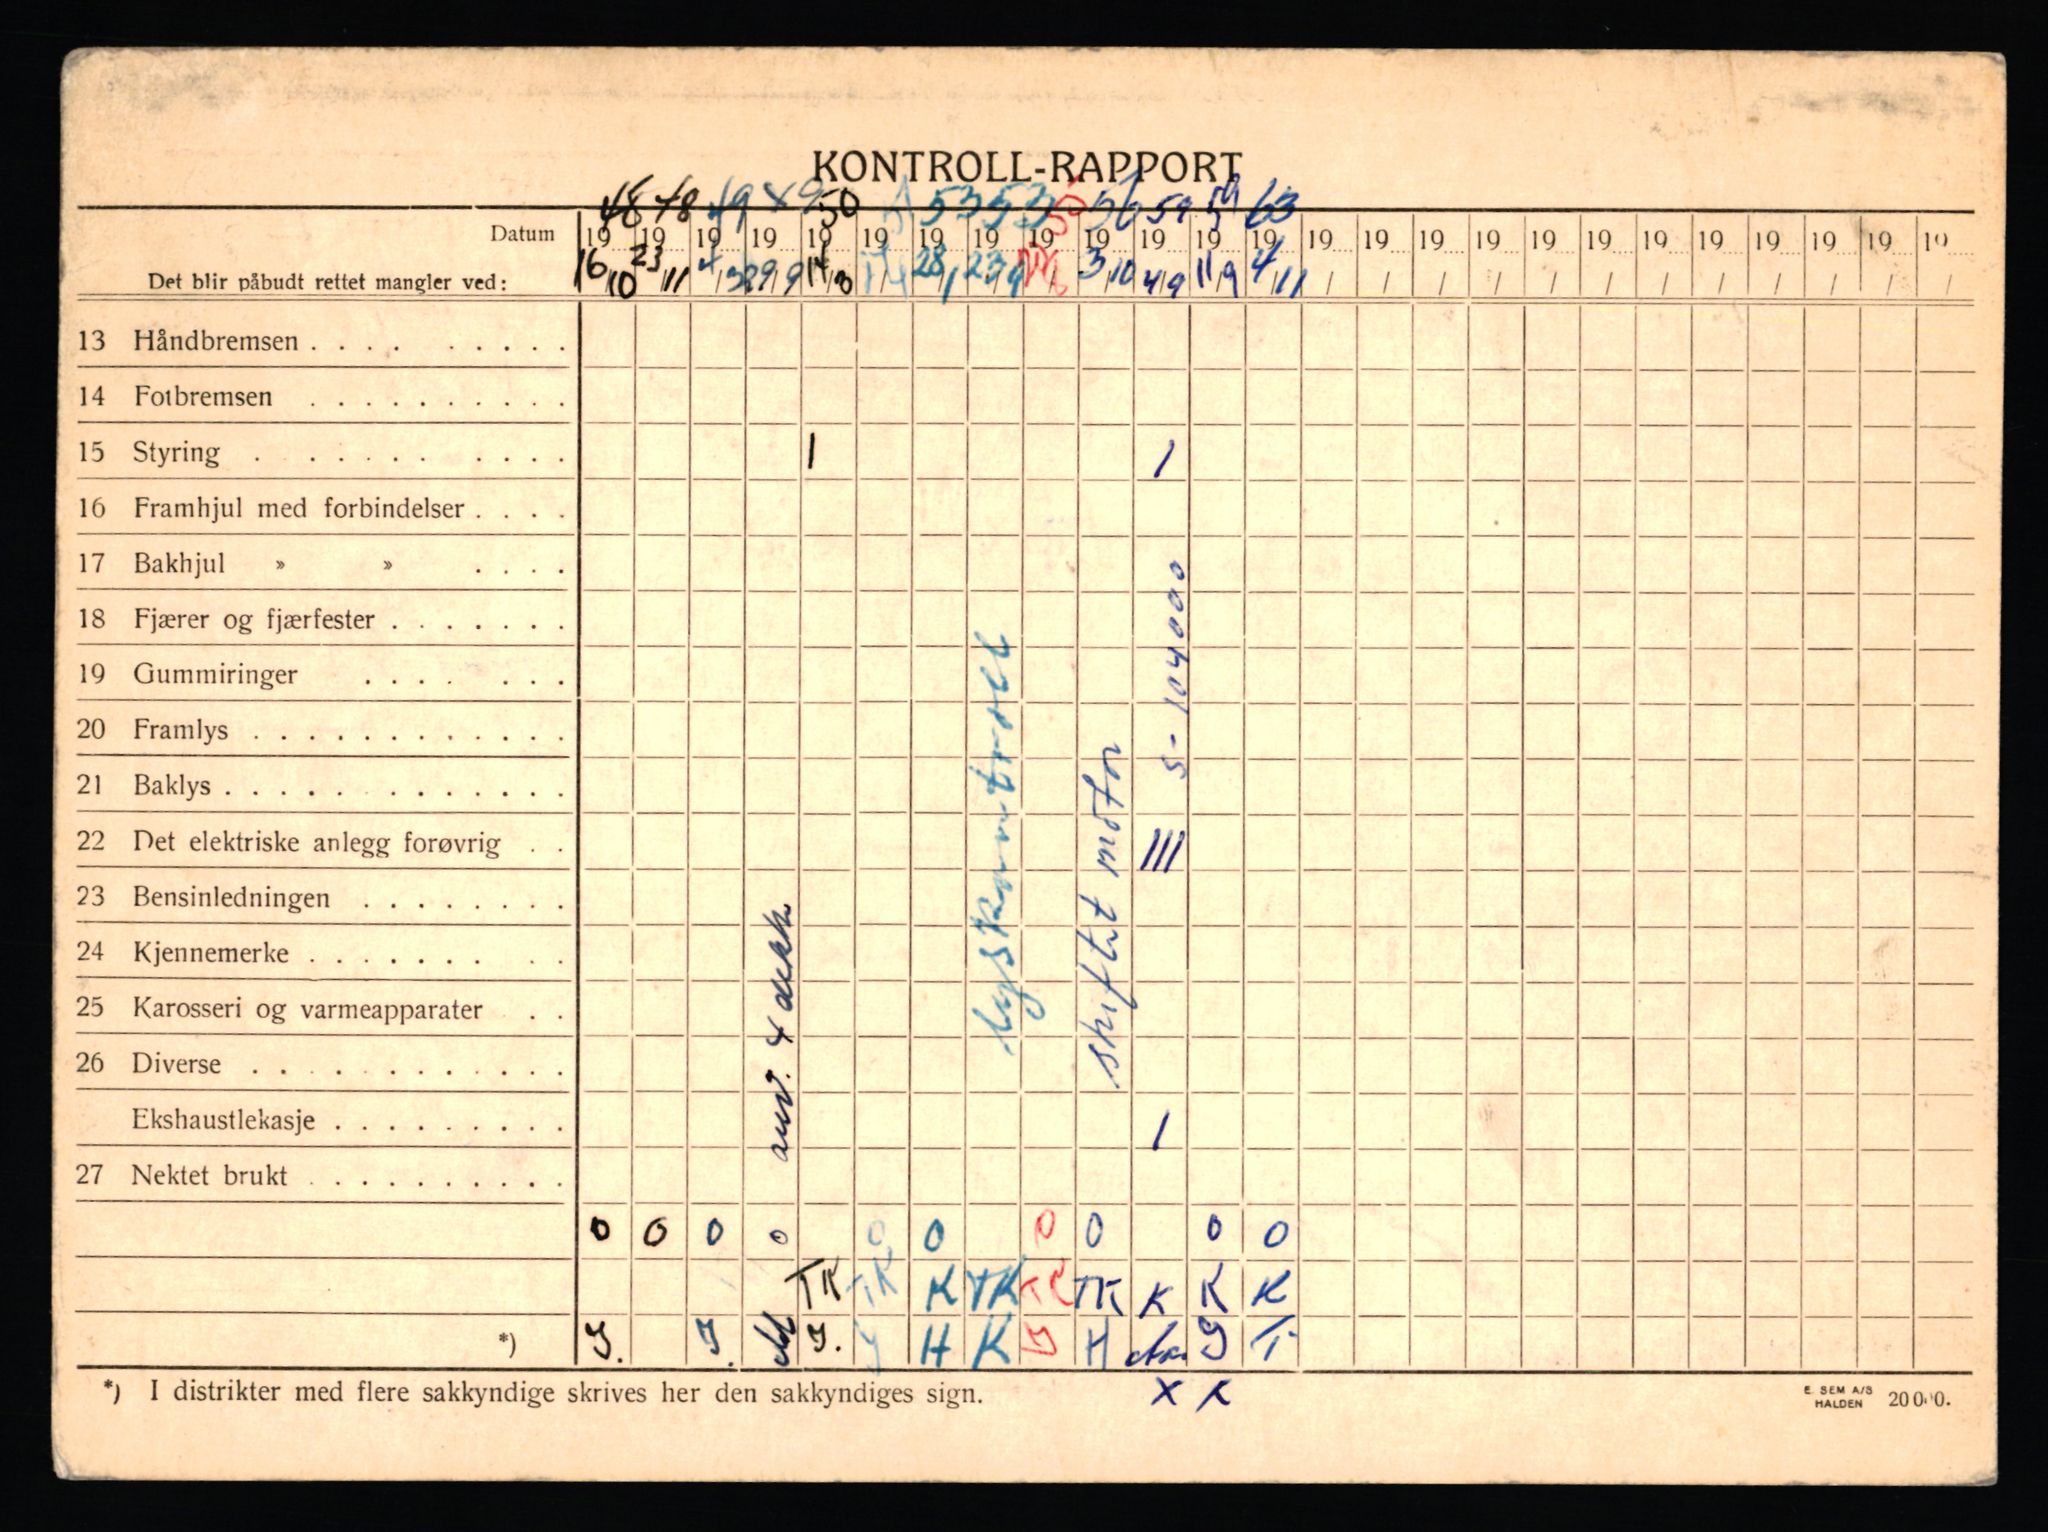 KONTROLL-RAPPORT
48 48 49 49 50 53 53 55 56 59 59 63
Datum 19 19 19 19 19 19 19 19 19 19 19 19 19 19 19 19 19 19 19 19 19 19 19 19 19
Det blir påbudt rettet mangler ved: 16/10 23/11 29/9 28/1 23/4 3/10 4/9 11/9 4/11 / / / / / / / / / / / /
13 Håndbremsen . . . . . . . . .
14 Fotbremsen . . . . . . . . . .
15 Styring . . . . . . . . . . . I I
16 Framhjul med forbindelser . . . .
17 Bakhjul » » . . . .
18 Fjærer og fjærfester . . . . . . .
19 Gummiringer . . . . . . .
20 Framlys . . . . . . . . . . . .
21 Baklys . . . . . . . . . . . . .
22 Det elektriske anlegg forøvrig . . III
23 Bensinledningen . . . . . . . .
24 Kjennemerke . . . . . . . . .
25 Karosseri og varmeapparater . .
26 Diverse . . . . . . . . . . . .
Ekshaustlekasje . . . . . . . . . I
27 Nektet brukt . . . . . . . . . .
anv. 4 dekk
Lyskontroll
skiftet motor
S-104000
0 0 0 0 0 0 0 0 0 0
TK TK K TK TK TK K K K
*) J. J. J. H K H J T
*) I distrikter med flere sakkyndige skrives her den sakkyndiges sign. X K
E. SEM A/S
HALDEN 20000.